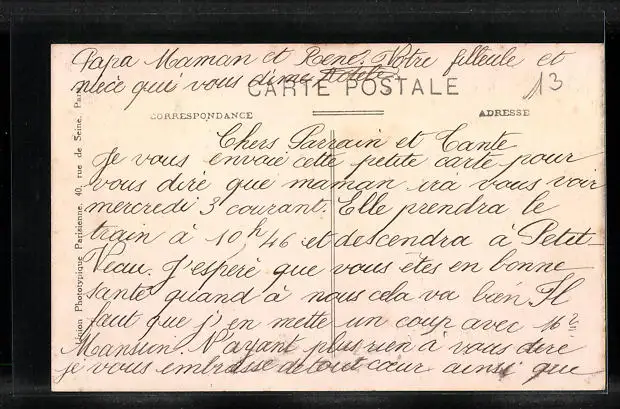 Papa Maman et René. Votre filleule et
nièce qui vous aime
CARTE POSTALE
13
CORRESPONDANCE
ADRESSE
Chers Parrain et Tante
Je vous envoie cette petite carte pour
vous dire que maman ira vous voir
mercredi 3 courant. Elle prendra le
train à 10h 46 et descendra à Petit-
Veau. J'espère que vous êtes en bonne
santé quand à nous cela va bien Il
faut que j'en mette un coup avec
N'ayant plus rien à vous dire
je vous embrasse de tout cœur ainsi que
Union Phototypique Parisienne. 40, rue de Seine. Par